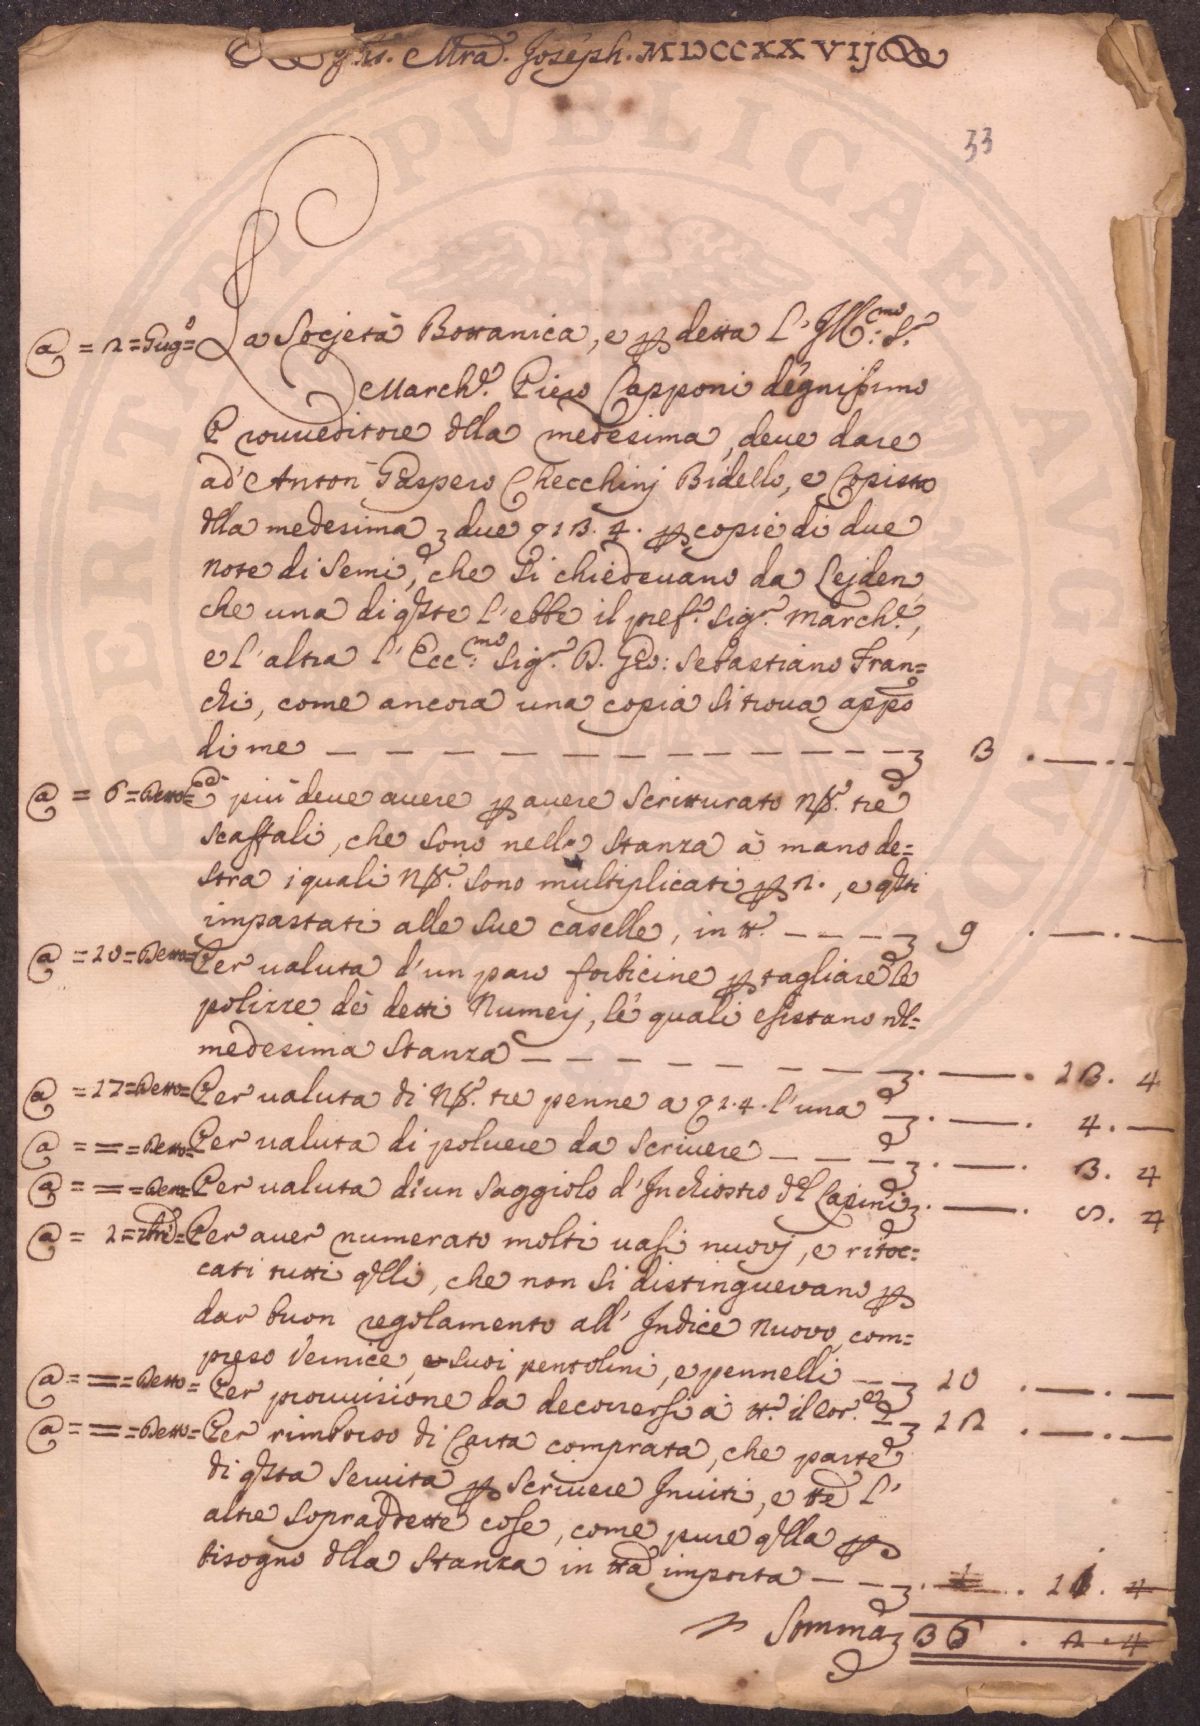 Jhs. Mra. Joseph. MDCCXXVIJ
33
PERITI PVBLICAE
@ = 2 = Giug.o = La Società Bottanica, e p detta l'Ill.mo S.r
March.e Piero Capponi degnissimo
Provveditore dlla medesima, deve dare
ad Anton Gaspero Checchinj Bidello, e Copista
dlla medesima due 13. 4. p copie di due
note di Semi, che si chiedevano da Lejden,
che una di qste l'ebbe il pref.o Sig.r March.e,
e l'altra l'Ecc.mo Sig.r D. Gio: Sebastiano Fran=
chi, come ancora una copia si trova appo
di me — — — — — — — 3
@ = 6 = Detto = E più deve avere p avere scritturato N.o tre
scaffali, che sono nella Stanza à mano de=
stra i quali N.i sono multiplicati p 2., e qsti
impastati alle sue caselle, in tt.o — — — — 9
@ = 20 = Detto = Per valuta d'un paro forbicine p tagliare le
polizze dè detti Numerj, lè quali esistano nl=
medesima Stanza — — — — — — — 13. 4
@ = 27 = Detto = Per valuta di N.o tre penne a 1. 4. l'una — 4. —
@ = = = Detto = Per valuta di polvere da scrivere — — — 3. 4
@ = = = Detto = Per valuta di un saggiolo d'Inchiostro dl Casini — 5. 4
@ = 2 = = Per aver numerato molti vasi nuovj, e ritoc=
cati tutti qlli, che non si distinguevano p
dar buon regolamento all'Indice Nuovo, com=
preso vernice, e suoi pentolini, e pennelli — — 10
@ = = = Detto = Per provvisione da decorrersi à tt.o il cor.e — 12
@ = = = Detto = Per rimborso di Carta comprata, che parte
di qsta servita p scrivere Inviti, e tte l'
altre sopraddette cose, come pure qlla p
bisogno dlla Stanza in tta importa — — — 4
Somma 36 . 2 . 4